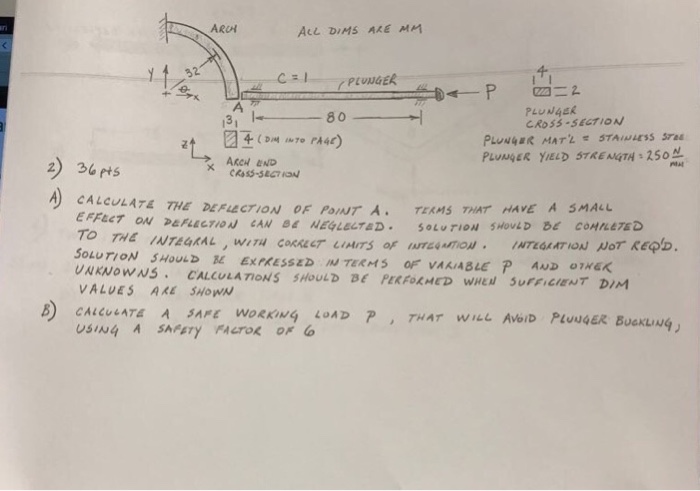 ARCH
ALL DIMS ARE MM
Y
32
θ
x
C = 1
PLUNGER
P
4
2
PLUNGER
CROSS-SECTION
A
3
80
4 (DIM INTO PAGE)
z
x
ARCH END
CROSS-SECTION
PLUNGER MAT'L = STAINLESS STEE
PLUNGER YIELD STRENGTH = 250 N
2) 36 pts
A) CALCULATE THE DEFLECTION OF POINT A. TERMS THAT HAVE A SMALL
EFFECT ON DEFLECTION CAN BE NEGLECTED. SOLUTION SHOULD BE COMPLETED
TO THE INTEGRAL, WITH CORRECT LIMITS OF INTEGRATION. INTEGRATION NOT REQ'D.
SOLUTION SHOULD BE EXPRESSED IN TERMS OF VARIABLE P AND OTHER
UNKNOWNS. CALCULATIONS SHOULD BE PERFORMED WHEN SUFFICIENT DIM
VALUES ARE SHOWN
B) CALCULATE A SAFE WORKING LOAD P, THAT WILL AVOID PLUNGER BUCKLING,
USING A SAFETY FACTOR OF 6